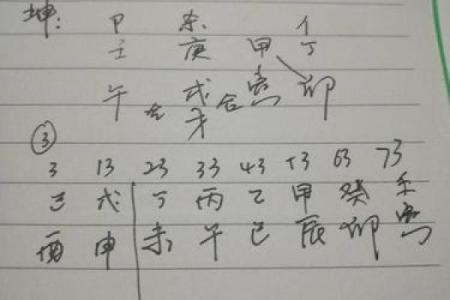 坤: 甲 杀 伤
壬 庚 甲 丁
午 戌 寅 卯
才 合
③
3 13 23 33 43 53 63 73
己 戊 丁 丙 乙 甲 癸 壬
酉 申 未 午 巳 辰 卯 寅